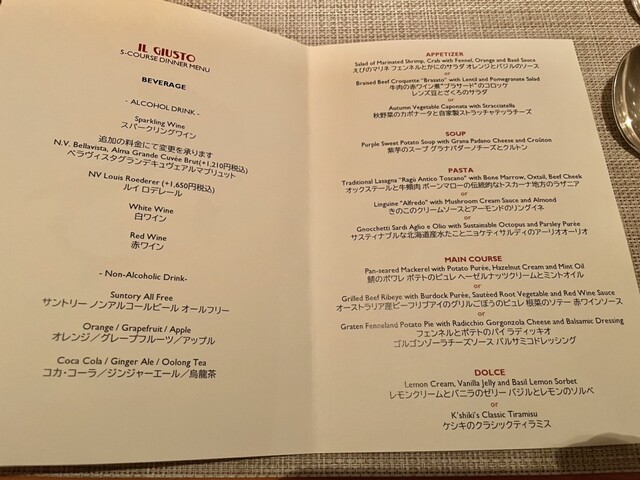 IL GIUSTO
5-COURSE DINNER MENU
BEVERAGE
- ALCOHOL DRINK -
Sparkling Wine
スパークリングワイン
追加の料金にて変更を承ります
N.V. Bellavista, Alma Grande Cuvée Brut(+1,210円税込)
ベラヴィスタグランデキュヴェアルマブリュット
NV Louis Roederer (+1,650円税込)
ルイ ロデレール
White Wine
白ワイン
Red Wine
赤ワイン
- Non-Alcoholic Drink-
Suntory All Free
サントリー ノンアルコールビール オールフリー
Orange / Grapefruit / Apple
オレンジ／グレープフルーツ／アップル
Coca Cola / Ginger Ale / Oolong Tea
コカ・コーラ／ジンジャーエール／烏龍茶
APPETIZER
Salad of Marinated Shrimp, Crab with Fennel, Orange and Basil Sauce
えびのマリネ フェンネルとかにのサラダ オレンジとバジルのソース
or
Braised Beef Croquette "Brasato" with Lentil and Pomegranate Salad
牛肉の赤ワイン煮"ブラサード"のコロッケ
レンズ豆とざくろのサラダ
or
Autumn Vegetable Caponata with Stracciatella
秋野菜のカポナータと自家製ストラッチャテッラチーズ
SOUP
Purple Sweet Potato Soup with Grana Padano Cheese and Croûton
紫芋のスープ グラナパダーノチーズとクルトン
PASTA
Traditional Lasagna "Ragù Antico Toscano" with Bone Marrow, Oxtail, Beef Cheek
オックステールと牛頬肉 ボーンマローの伝統的なトスカーナ地方のラザニア
or
Linguine "Alfredo" with Mushroom Cream Sauce and Almond
きのこのクリームソースとアーモンドのリングイネ
or
Gnocchetti Sardi Aglio e Olio with Sustainable Octopus and Parsley Purèe
サスティナブルな北海道産水たことニョケティサルディのアーリオオーリオ
MAIN COURSE
Pan-seared Mackerel with Potato Purèe, Hazelnut Cream and Mint Oil
鯖のポワレ ポテトのピュレ ヘーゼルナッツクリームとミントオイル
or
Grilled Beef Ribeye with Burdock Purèe, Sautéed Root Vegetable and Red Wine Sauce
オーストラリア産ビーフリブアイのグリルごぼうのピュレ 根菜のソテー 赤ワインソース
or
Graten Fenneland Potato Pie with Radicchio Gorgonzola Cheese and Balsamic Dressing
フェンネルとポテトのパイ ラディッキオ
ゴルゴンゾーラチーズソース バルサミコドレッシング
DOLCE
Lemon Cream, Vanilla Jelly and Basil Lemon Sorbet
レモンクリームとバニラのゼリー バジルとレモンのソルベ
or
K'shiki's Classic Tiramisu
ケシキのクラシックティラミス